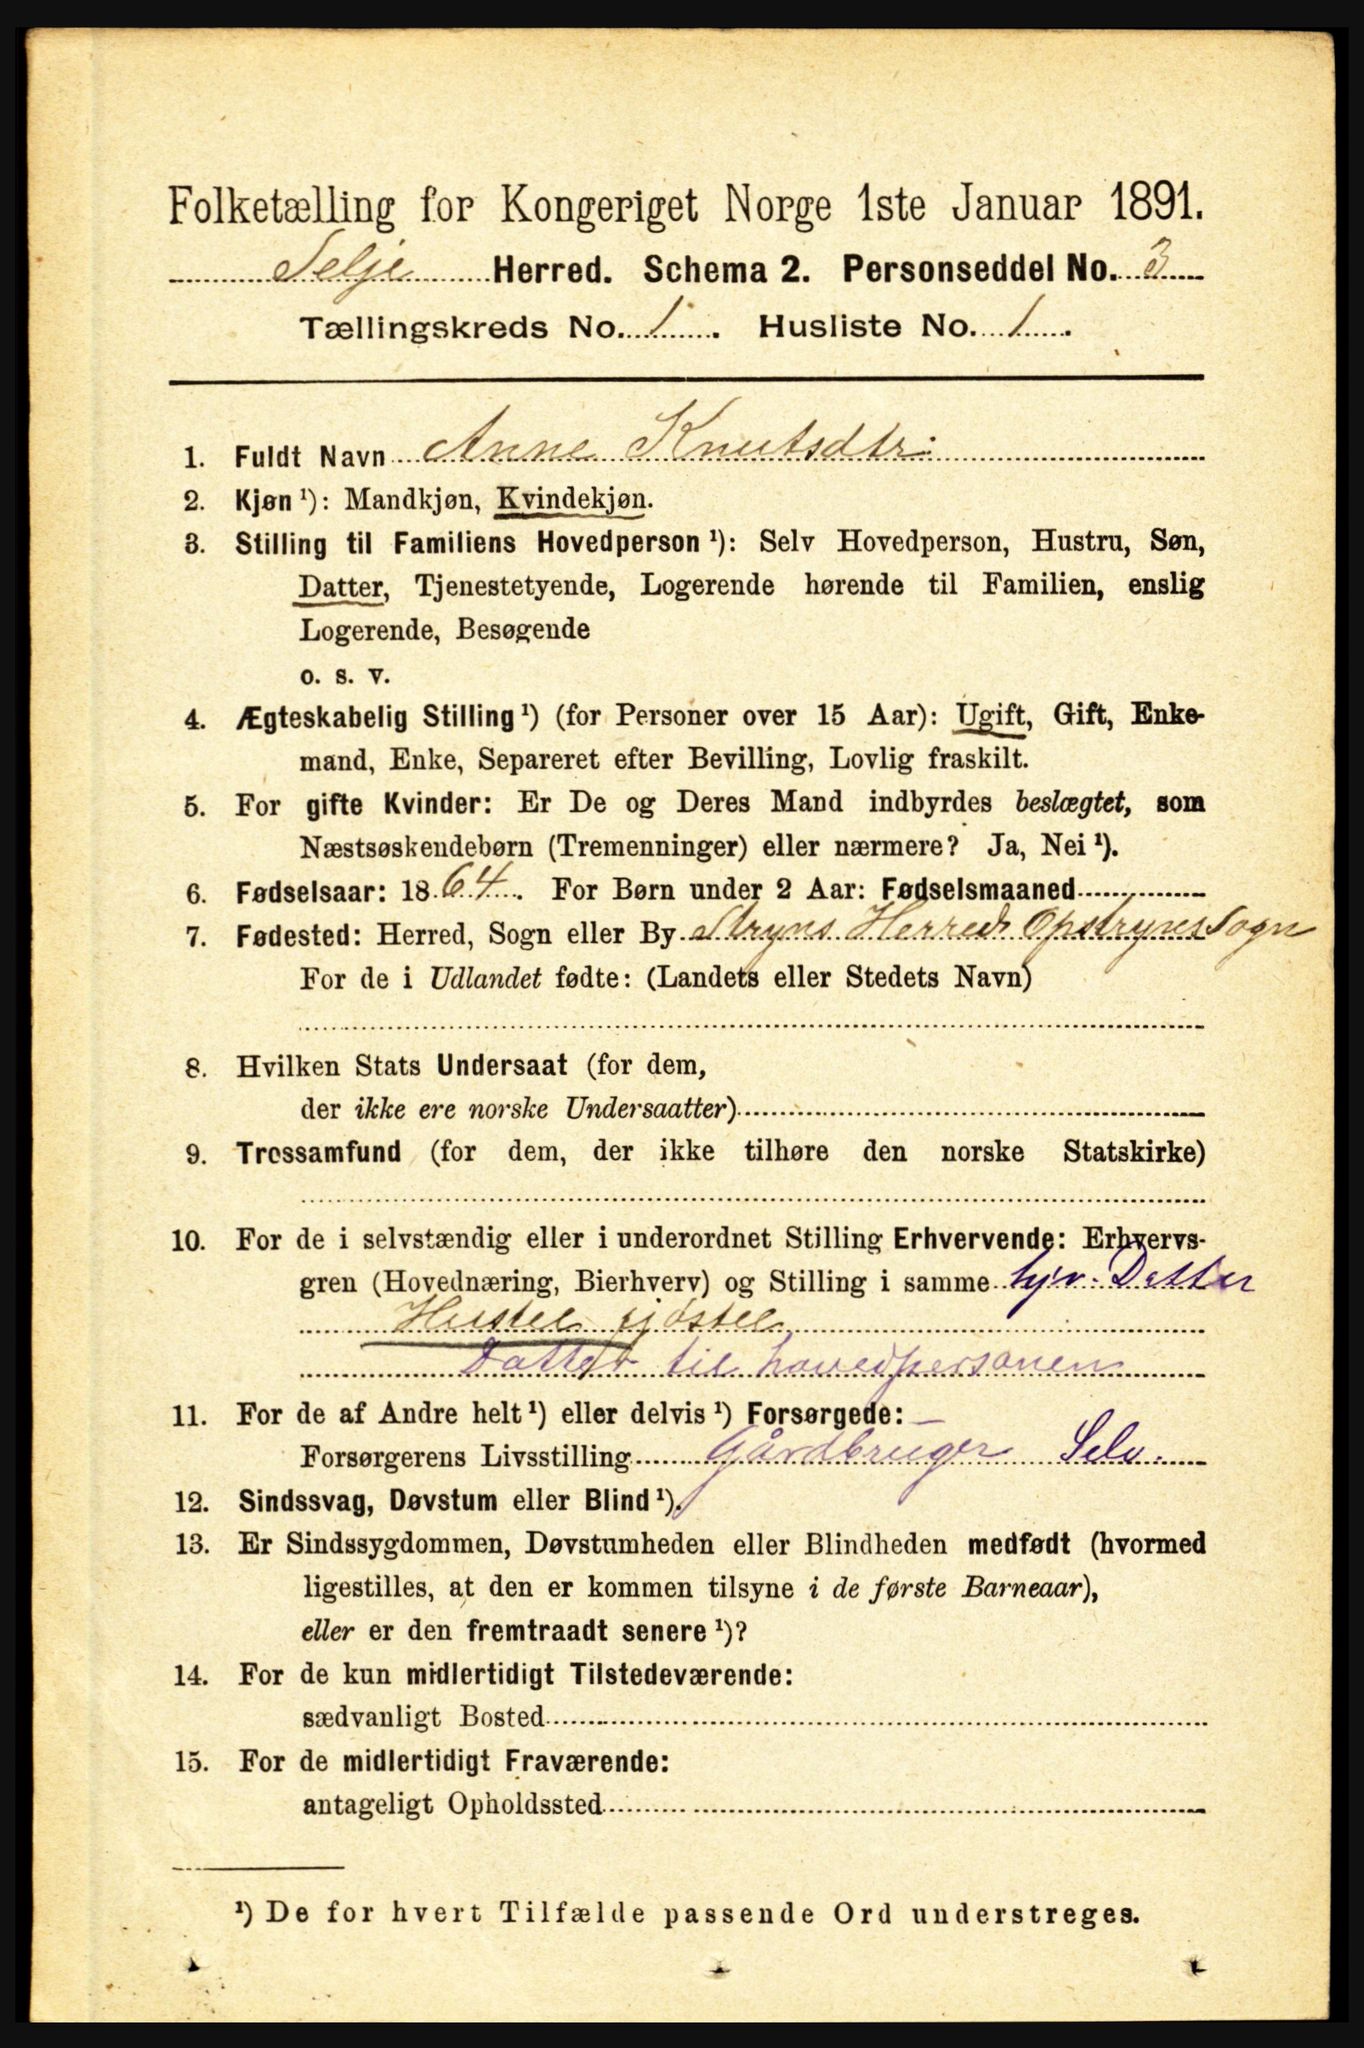 Folketælling for Kongeriget Norge 1ste Januar 1891.
Selje Herred. Schema 2. Personseddel No. 3
Tællingskreds No. 1. Husliste No. 1.
1. Fuldt Navn Anne Knutsdtr.
2. Kjøn ¹): Mandkjøn, Kvindekjøn.
3. Stilling til Familiens Hovedperson ¹): Selv Hovedperson, Hustru, Søn,
Datter, Tjenestetyende, Logerende hørende til Familien, enslig
Logerende, Besøgende
o. s. v.
4. Ægteskabelig Stilling ¹) (for Personer over 15 Aar): Ugift, Gift, Enke-
mand, Enke, Separeret efter Bevilling, Lovlig fraskilt.
5. For gifte Kvinder: Er De og Deres Mand indbyrdes beslægtet, som
Næstsøskendebørn (Tremenninger) eller nærmere? Ja, Nei ¹).
6. Fødselsaar: 1864. For Børn under 2 Aar: Fødselsmaaned
7. Fødested: Herred, Sogn eller By Stryns Herred Opstryns Sogn
For de i Udlandet fødte: (Landets eller Stedets Navn)
8. Hvilken Stats Undersaat (for dem,
der ikke ere norske Undersaatter)
9. Trossamfund (for dem, der ikke tilhøre den norske Statskirke)
10. For de i selvstændig eller i underordnet Stilling Erhvervende: Erhvervs-
gren (Hovednæring, Bierhverv) og Stilling i samme hjv. Datter
Hustel fjøstel
Datter til hovedpersonen
11. For de af Andre helt ¹) eller delvis ¹) Forsørgede:
Forsørgerens Livsstilling Gårdbruger Selv.
12. Sindssvag, Døvstum eller Blind ¹).
13. Er Sindssygdommen, Døvstumheden eller Blindheden medfødt (hvormed
ligestilles, at den er kommen tilsyne i de første Barneaar),
eller er den fremtraadt senere ¹)?
14. For de kun midlertidigt Tilstedeværende:
sædvanligt Bosted
15. For de midlertidigt Fraværende:
antageligt Opholdssted
¹) De for hvert Tilfælde passende Ord understreges.